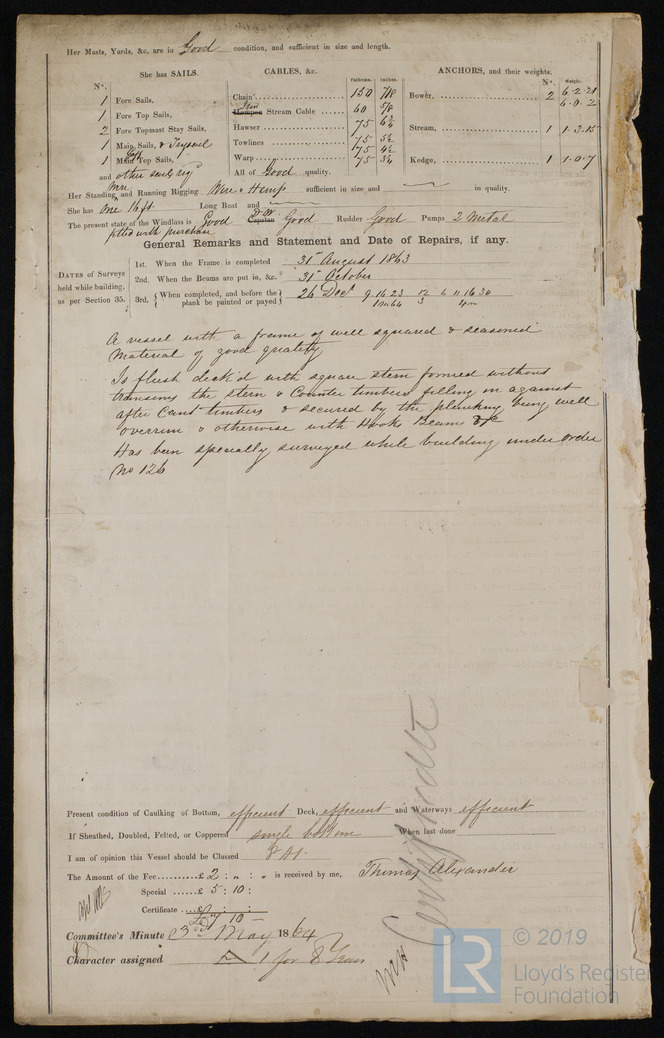 Her Masts, Yards, &c. are in Good condition, and sufficient in size and length.
She has SAILS.
N°.
1 Fore Sails,
1 Fore Top Sails,
2 Fore Topmast Stay Sails,
1 Main Sails, & Trysail
1 Main Top Sails,
and other sails rig
CABLES, &c.
Fathoms. Inches.
Chain 150 7/8
Iron
Hempen Stream Cable 60 5/8
Hawser 75
Towlines 75 5½
75 4½
Warp 75 3½
All of Good quality.
ANCHORS, and their weights.
N°. Weight.
Bower, 2 6.2.21
6.0.2
Stream, 1 1.3.15
Kedge, 1 1.0.7
Her Standing and Running Rigging Wire & Hemp sufficient in size and in quality.
She has one 16 ft Long Boat and
The present state of the Windlass is Good Capstan Good Rudder Good Pumps 2 Metal
fitted with purchase
General Remarks and Statement and Date of Repairs, if any.
DATES of Surveys held while building, as per Section 35.
1st. When the Frame is completed 31st August 1863
2nd. When the Beams are put in, &c. 31st October
3rd. When completed, and before the plank be painted or payed 26 Decr 9 16 23
A vessel with a frame of well squared & seasoned
material of good quality
Is flush deck'd with square stern formed without
transoms the stern & Counter timbers filling in against
after Cant timbers & secured by the planking being well
overrun & otherwise with Hooks Beams &c
Has been specially surveyed while building under order
No 126
Present condition of Caulking of Bottom, efficient Deck, efficient and Waterways efficient
If Sheathed, Doubled, Felted, or Coppered single bottom When last done
I am of opinion this Vessel should be Classed 8 A1.
The Amount of the Fee £ 2 : „ : „ is received by me, Thomas Alexander
Special £ 5 : 10 :
Certificate £ : :
£ 7 10 –
Committee's Minute 3rd May 1864
Character assigned A 1 for 8 Years
© 2019
LR
Lloyd's Register
Foundation